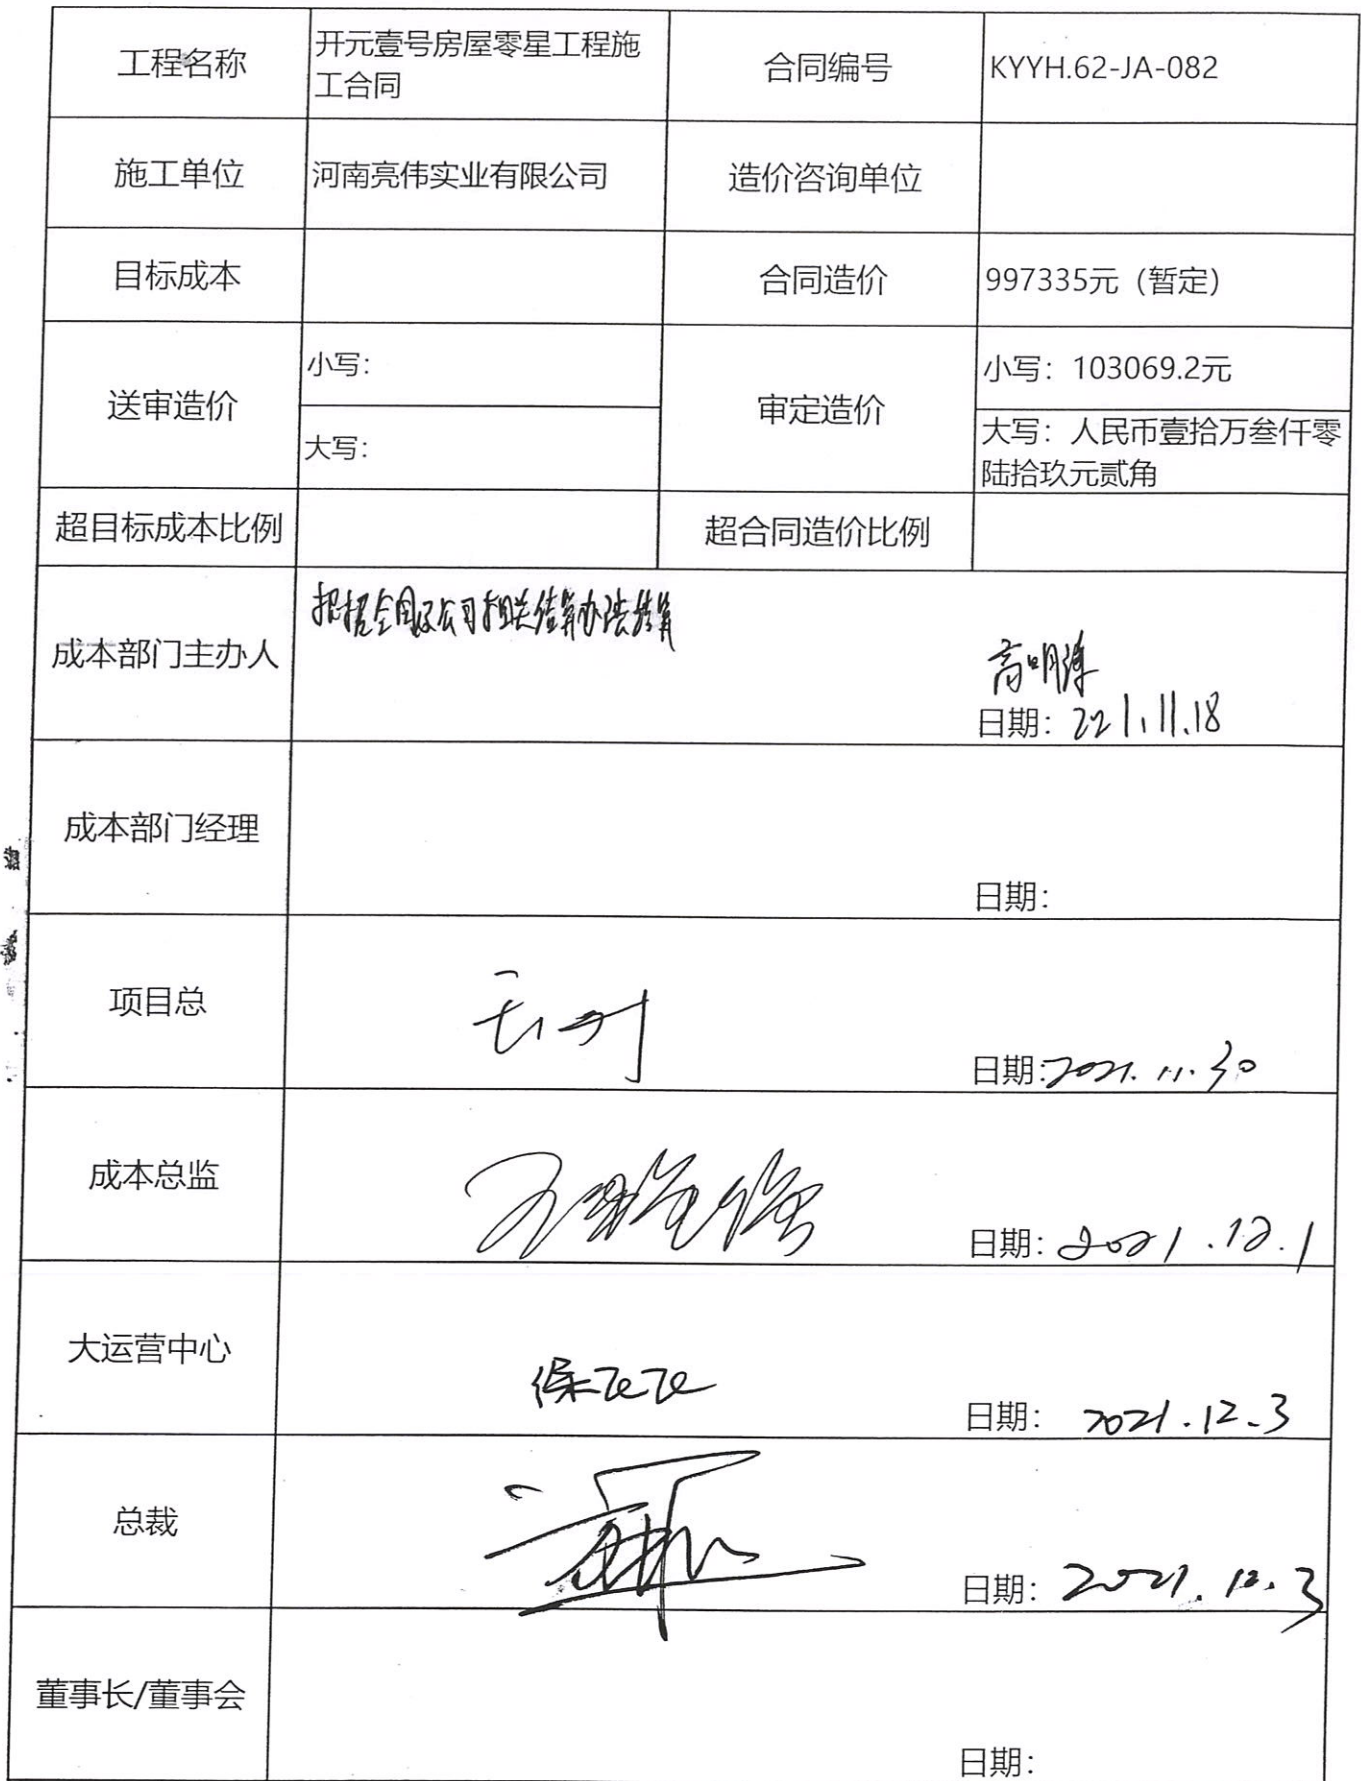 工程名称
开元壹号房屋零星工程施
工合同
合同编号
KYYH.62-JA-082
施工单位
河南亮伟实业有限公司
造价咨询单位
目标成本
合同造价
997335元（暂定）
送审造价
小写：
大写：
审定造价
小写：103069.2元
大写：人民币壹拾万叁仟零
陆拾玖元贰角
超目标成本比例
超合同造价比例
成本部门主办人
根据合同及公司相关结算办法结算
日期：2021.11.18
成本部门经理
日期：
项目总
日期：2021.11.30
成本总监
日期：2021.12.1
大运营中心
日期：2021.12.3
总裁
日期：2021.12.3
董事长/董事会
日期：